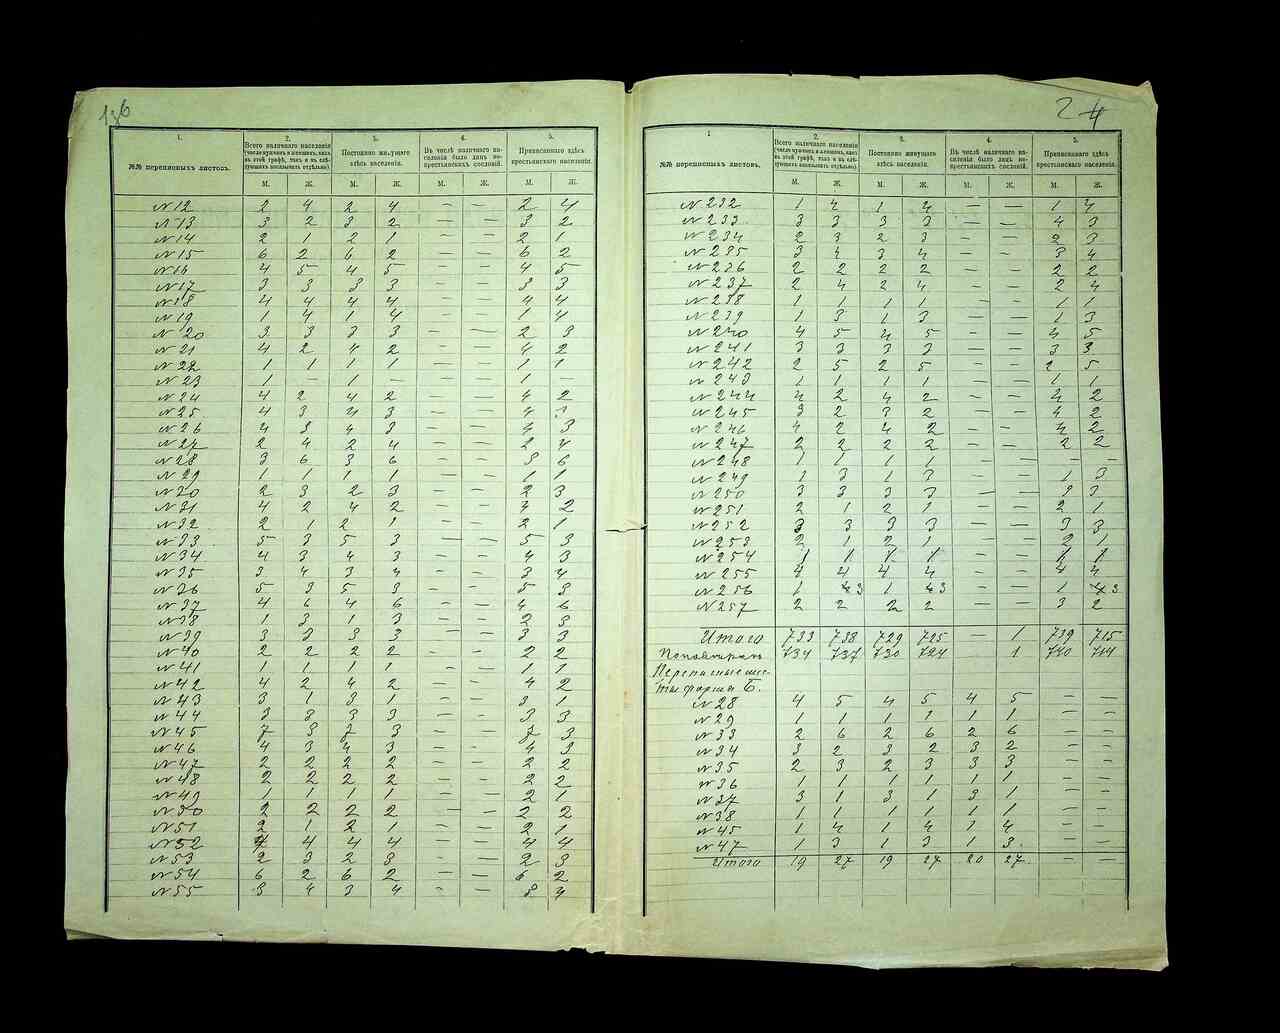 136
1. 2. 3. 4. 5.
№№ переписныхъ листовъ. Всего наличнаго населенія (число мужчинъ и женщинъ, какъ въ этой графѣ, такъ и въ слѣдующихъ показывать отдѣльно). Постоянно живущаго здѣсь населенія. Въ числѣ наличнаго населенія было лицъ некрестьянскихъ сословій. Приписаннаго здѣсь крестьянскаго населенія.
М. Ж. М. Ж. М. Ж. М. Ж.
№12 2 4 2 4 — — 2 4
№13 3 2 3 2 — — 3 2
№14 2 1 2 1 — — 2 1
№15 6 2 6 2 — — 6 2
№16 4 5 4 5 — — 4 5
№17 3 3 3 3 — — 3 3
№18 4 4 4 4 — — 4 4
№19 1 4 1 4 — — 1 4
№20 3 3 3 3 — — 2 3
№21 4 2 4 2 — — 4 2
№22 1 1 1 1 — — 1 1
№23 1 — 1 — — — 1 —
№24 4 2 4 2 — — 4 2
№25 4 3 4 3 — — 4
№26 4 3 4 3 — — 4 3
№27 2 4 2 4 — — 2 4
№28 3 6 3 6 — — 3 6
№29 1 1 1 1 — — 1 1
№30 2 3 2 3 — — 2 3
№31 4 2 4 2 — — 4 2
№32 2 1 2 1 — — 2 1
№33 5 3 5 3 — — 5 3
№34 4 3 4 3 — — 4 3
№35 3 4 3 4 — — 3 4
№36 5 3 5 3 — — 5 3
№37 4 6 4 6 — — 4 6
№38 1 3 1 3 — — 2 3
№39 3 3 3 3 — — 3 3
№40 2 2 2 2 — — 2 2
№41 1 1 1 1 — — 1 1
№42 4 2 4 2 — — 4 2
№43 3 1 3 1 — — 3 1
№44 3 3 3 3 — — 3 3
№45 7 3 7 3 — — 7 3
№46 4 3 4 3 — — 4 3
№47 2 2 2 2 — — 2 2
№48 2 2 2 2 — — 2 2
№49 1 1 1 1 — — 2 1
№50 2 2 2 2 — — 2 2
№51 2 1 2 1 — — 2 1
№52 4 4 4 4 — — 4 4
№53 2 3 2 3 — — 2 3
№54 6 2 6 2 — — 6 2
№55 3 4 3 4 — — 3 4
24
1 2. 3. 4. 5.
№№ переписныхъ листовъ. Всего наличнаго населенія (число мужчинъ и женщинъ, какъ въ этой графѣ, такъ и въ слѣдующихъ показывать отдѣльно). Постоянно живущаго здѣсь населенія. Въ числѣ наличнаго населенія было лицъ некрестьянскихъ сословій. Приписаннаго здѣсь крестьянскаго населенія.
М. Ж. М. Ж. М. Ж. М. Ж.
№232 1 4 1 4 — — 1 4
№233 3 3 3 3 — — 4 3
№234 2 3 2 3 — — 2 3
№235 3 4 3 4 — — 3 4
№236 2 2 2 2 — — 2 2
№237 2 4 2 4 — — 2 4
№238 1 1 1 1 — — 1 1
№239 1 3 1 3 — — 1 3
№240 4 5 4 5 — — 4 5
№241 3 3 3 3 — — 3 3
№242 2 5 2 5 — — 2 5
№243 1 1 1 1 — — 1 1
№244 4 2 4 2 — — 4 2
№245 3 2 3 2 — — 4 2
№246 4 2 4 2 — — 4 2
№247 2 2 2 2 — — 2 2
№248 1 1 1 1 — — — —
№249 1 3 1 3 — — 1 3
№250 3 3 3 3 — — 3 3
№251 2 1 2 1 — — 2 1
№252 3 3 3 3 — — 3 3
№253 2 1 2 1 — — 2 1
№254 1 1 1 1 — — 1 1
№255 4 4 4 4 — — 4 4
№256 1 3 1 3 — — 1 3
№257 2 2 2 2 — — 3 2
Итого 733 738 729 725 — 1 739 715
734 737 730 724 1 740 714
Переписные лис-
ты формы Б.
№28 4 5 4 5 4 5 — —
№29 1 1 1 1 1 1 — —
№33 2 6 2 6 2 6 — —
№34 3 2 3 2 3 2 — —
№35 2 3 2 3 3 3 — —
№36 1 1 1 1 1 1 — —
№37 3 1 3 1 3 1 — —
№38 1 1 1 1 1 1 — —
№45 1 4 1 4 1 4 — —
№47 1 3 1 3 1 3 — —
Итого 19 27 19 27 20 27 — —